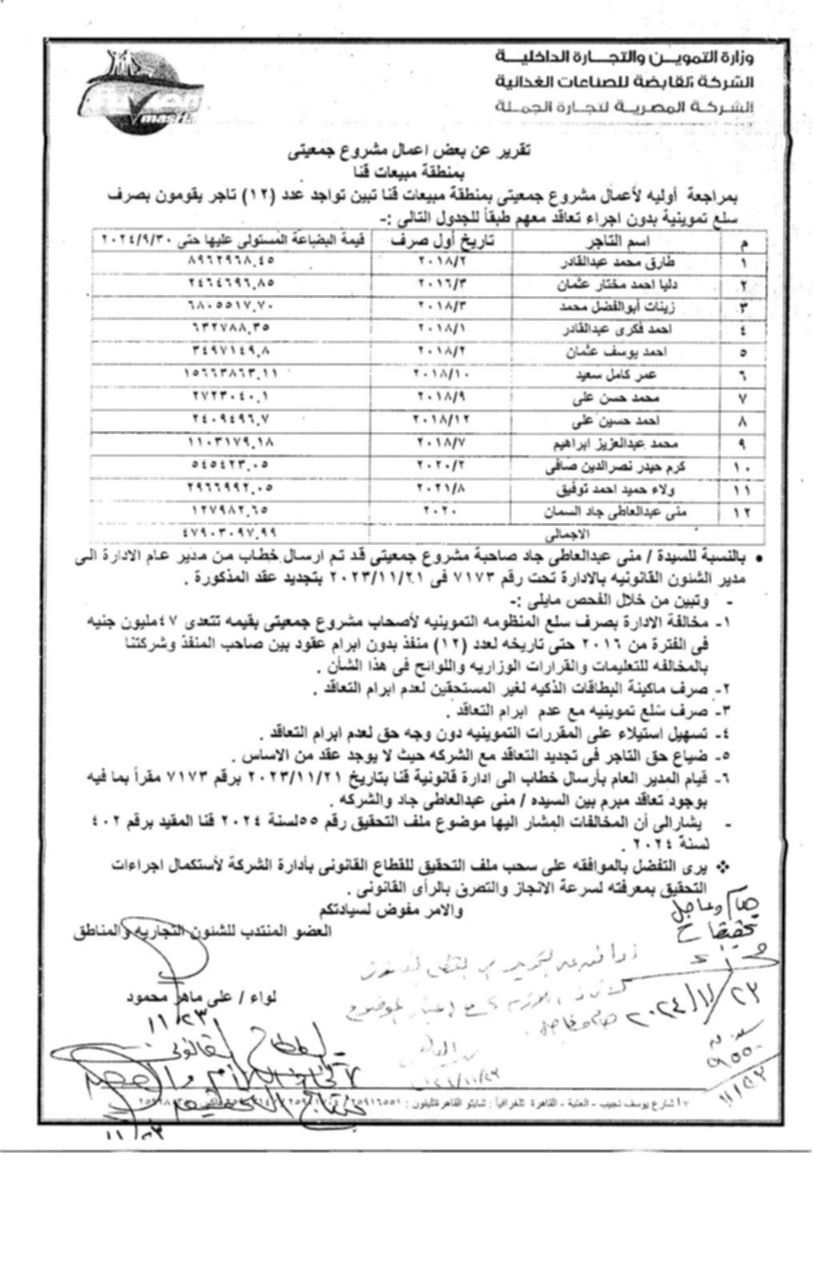 وزارة التموين والتجارة الداخلية
الشركة القابضة للصناعات الغذائية
الشركة المصرية لتجارة الجملة
masr
تقرير عن بعض اعمال مشروع جمعيتى
بمنطقة مبيعات قنا
بمراجعة أوليه لأعمال مشروع جمعيتى بمنطقة مبيعات قنا تبين تواجد عدد (١٢) تاجر يقومون بصرف
سلع تموينية بدون اجراء تعاقد معهم طبقاً للجدول التالى :-
م اسم التاجر تاريخ أول صرف قيمة البضاعة المستولى عليها حتى ٢٠٢٤/٩/٣٠
١ طارق محمد عبدالقادر ٢٠١٨/٢ ٨٩٦٢٩٦٨,٤٥
٢ دليا احمد مختار عثمان ٢٠١٦/٣ ٢٤٦٤٦٩٦,٨٥
٣ زينات أبوالفضل محمد ٢٠١٨/٣ ٦٨٠٥٥١٧,٧٠
٤ احمد فكرى عبدالقادر ٢٠١٨/١ ٦٣٢٧٨٨,٣٥
٥ احمد يوسف عثمان ٢٠١٨/٢ ٣٤٩٧١٤٩,٨
٦ عمر كامل سعيد ٢٠١٨/١٠ ١٥٦٦٣٨٦٣,١١
٧ محمد حسن على ٢٠١٨/٩ ٢٧٢٣٠٤٠,١
٨ احمد حسين على ٢٠١٨/١٢ ٢٤٠٩٤٩٦,٧
٩ محمد عبدالعزيز ابراهيم ٢٠١٨/٧ ١١٠٣١٧٩,١٨
١٠ كرم حيدر نصرالدين صافى ٢٠٢٠/٢ ٥٤٥٤٢٣,٠٥
١١ ولاء حميد احمد توفيق ٢٠٢١/٨ ٢٩٦٦٩٩٢,٠٥
١٢ منى عبدالعاطى جاد السمان ٢٠٢٠ ١٢٧٩٨٢,٦٥
الاجمالى ٤٧٩٠٣٠٩٧,٩٩
• بالنسبة للسيدة / منى عبدالعاطى جاد صاحبة مشروع جمعيتى قد تم ارسال خطاب من مدير عام الادارة الى
مدير الشئون القانونيه بالادارة تحت رقم ٧١٧٣ فى ٢٠٢٣/١١/٢١ بتجديد عقد المذكورة .
- وتبين من خلال الفحص مايلى :-
١- مخالفة الادارة بصرف سلع المنظومه التموينيه لأصحاب مشروع جمعيتى بقيمه تتعدى ٤٧مليون جنيه
فى الفترة من ٢٠١٦ حتى تاريخه لعدد (١٢) منفذ بدون ابرام عقود بين صاحب المنفذ وشركتنا
بالمخالفه للتعليمات والقرارات الوزاريه واللوائح فى هذا الشأن .
٢- صرف ماكينة البطاقات الذكيه لغير المستحقين لعدم ابرام التعاقد .
٣- صرف سلع تموينيه مع عدم ابرام التعاقد .
٤- تسهيل استيلاء على المقررات التموينيه دون وجه حق لعدم ابرام التعاقد .
٥- ضياع حق التاجر فى تجديد التعاقد مع الشركه حيث لا يوجد عقد من الاساس .
٦- قيام المدير العام بأرسال خطاب الى ادارة قانونية قنا بتاريخ ٢٠٢٣/١١/٢١ برقم ٧١٧٣ مقراً بما فيه
بوجود تعاقد مبرم بين السيده / منى عبدالعاطى جاد والشركه .
- يشارالى أن المخالفات المشار اليها موضوع ملف التحقيق رقم ٥٥لسنة ٢٠٢٤ قنا المقيد برقم ٤٠٢
لسنة ٢٠٢٤ .
❖ يرى التفضل بالموافقه على سحب ملف التحقيق للقطاع القانونى بأدارة الشركة لأستكمال اجراءات
التحقيق بمعرفته لسرعة الانجاز والتصرق بالرأى القانونى .
والامر مفوض لسيادتكم
العضو المنتدب للشئون التجاريه والمناطق
هام وعاجل
لواء / على ماهر محمود
١١/٢٣
٢٠٢٤/١١/٢٣
١١/٢٣
١٧ شارع يوسف نجيب - العتبة - القاهرة تلغرافياً : شابتو القاهرة تليفون : ٢٥٩١٦٥٥١
١١/٢٣